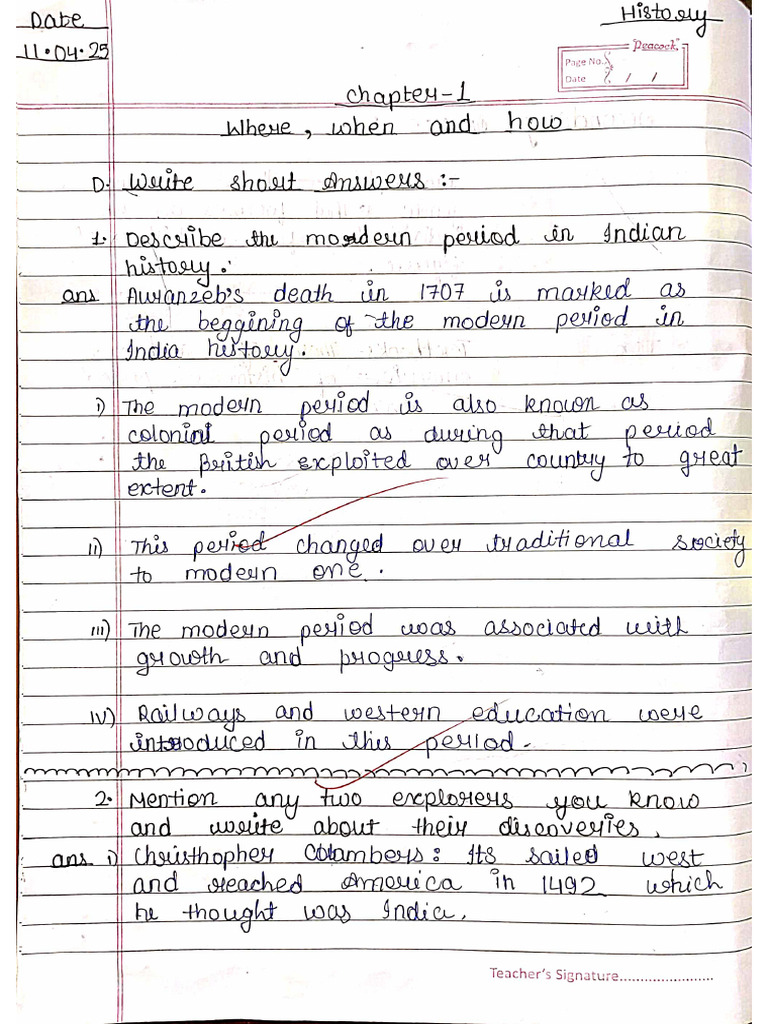 Date
History
11.04.25
"Peacock"
Page No.
Date / /
Chapter-1
Where, when and how
D. Write short Answers :-
1. Describe the mordern period in Indian
history.
ans Auranzeb's death in 1707 is marked as
the beggining of the modern period in
India history.
i) The modern period is also known as
colonial period as during that period
the British exploited over country to great
extent.
ii) This period changed over traditional society
to modern one.
iii) The modern period was associated with
growth and progress.
iv) Railways and western education were
introduced in this period.
2. Mention any two explorers you know
and write about their discoveries.
ans i) Christhopher Colambers: Its sailed west
and reached America in 1492 which
he thought was India.
Teacher's Signature........................